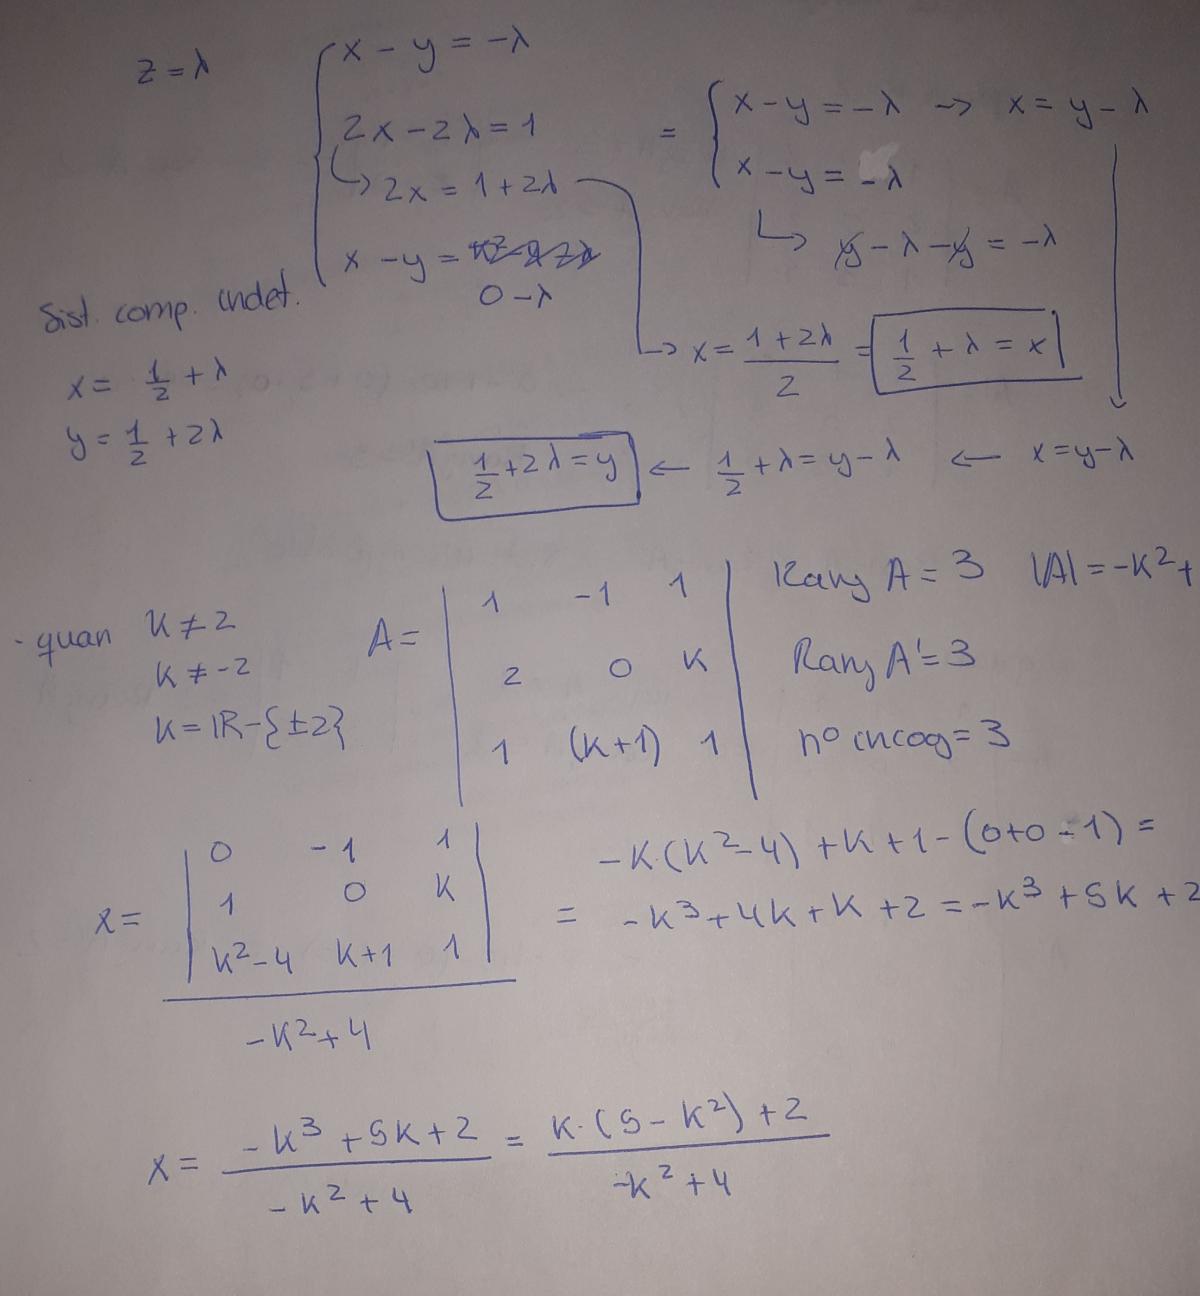 z = λ
x - y = -λ
2x - 2λ = 1
↳ 2x = 1 + 2λ
x - y =
0 - λ
= x - y = -λ → x = y - λ
x - y = -λ
↳ y - λ - y = -λ
→ x = (1 + 2λ)/2 = 1/2 + λ = x
Sist. comp. indet.
x = 1/2 + λ
y = 1/2 + 2λ
1/2 + 2λ = y ← 1/2 + λ = y - λ ← x = y - λ
- quan K ≠ 2
K ≠ -2
K = IR - {±2}
A = | 1 -1 1 |
| 2 0 K |
| 1 (K+1) 1 |
Rang A = 3 |A| = -K² +
Rang A' = 3
nº incog = 3
x = | 0 -1 1 |
| 1 0 K |
| K²-4 K+1 1 |
-K² + 4
-K·(K²-4) + K + 1 - (0+0-1) =
= -K³ + 4K + K + 2 = -K³ + 5K + 2
x = (-K³ + 5K + 2)/(-K² + 4) = (K·(5 - K²) + 2)/(-K² + 4)